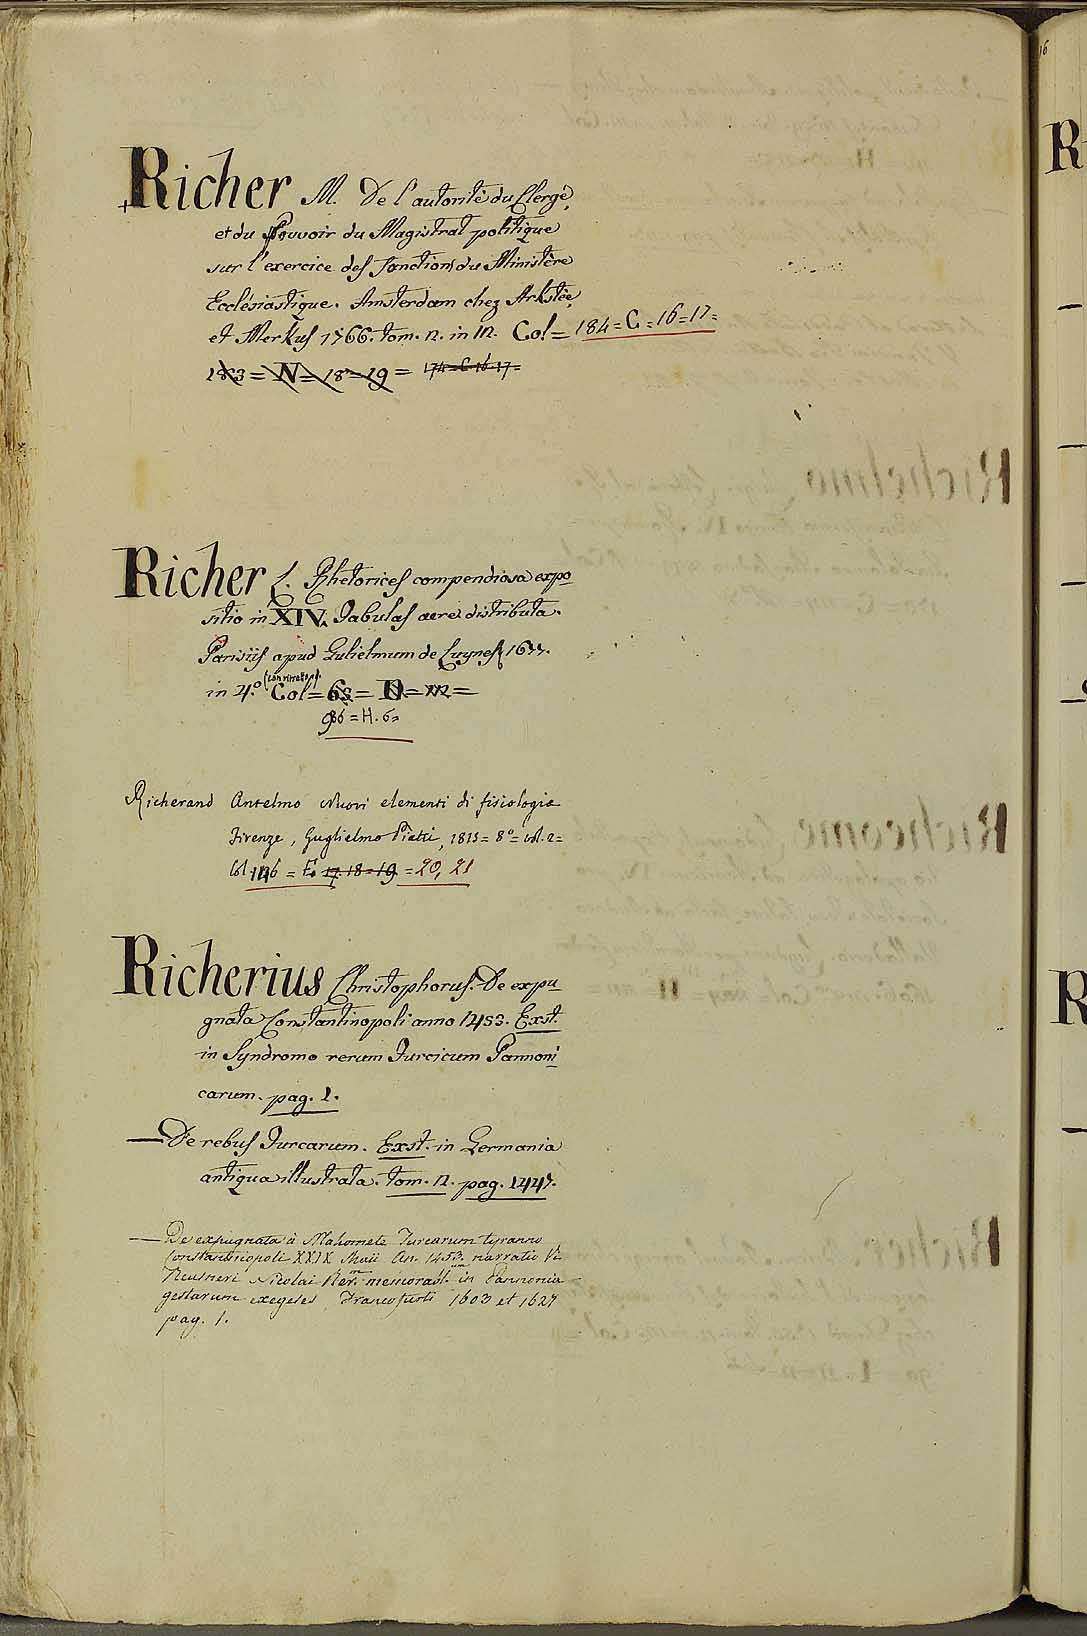 Richer M. De l'autorité du Clergé,
et du Pouvoir du Magistrat politique
sur l'exercice des fonctions du Ministère
Ecclésiastique. Amsterdam chez Arkstée,
et Merkus 1766. tom. 2. in 12. Col = 184 = C = 16 = 17 =
183 = N = 18 = 19 = 174 = C 16 17 =
Richer L. Rhetorices compendiosa expo
sitio in XIV. Tabulas aere distributa.
Parisiis apud Gulielmum de Luynes 1677.
in 4.° Col = 63 = D = 112 =
986 = H. 6 =
Richerand Anselmo Nuovi elementi di fisiologia
Firenze, Guglielmo Piatti, 1815 = 8° = vol. 2 =
Col 146 = E. 17. 18 = 19 = 20, 21
Richerius Christophorus. De expu
gnata Constantinopoli anno 1453. Exst.
in Syndromo rerum Turcicum Pannoni
carum. pag. 1.
— De rebus Turcarum. Exst. in Germania
antiqua illustrata. tom. 2. pag. 1447.
— De expugnata à Mahomete Turcarum tyranno
Constantinopoli XXIX Maii An. 1453. narratio V.
Reusneri Nicolai Rer.m memorabl.um in Pannonia
gestarum exegeses Francofurti 1603 et 1627
pag. 1.
Richelmo
Richeome
Richer